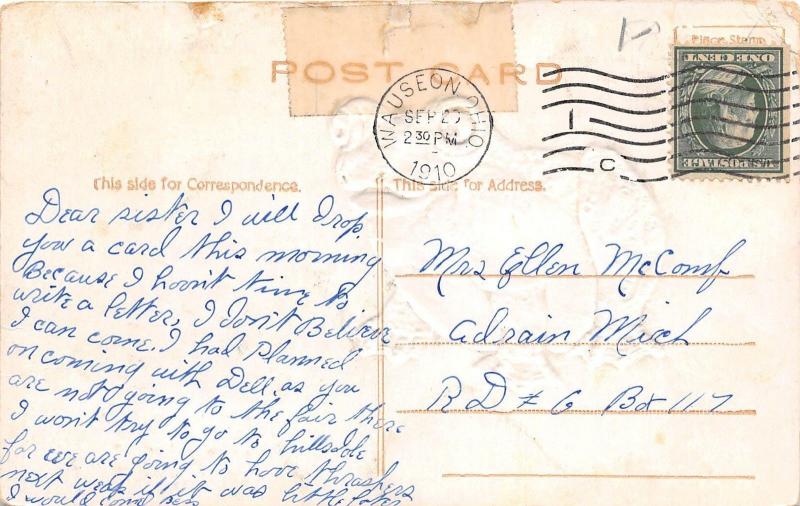 POST CARD
Place Stamp
WAUSEON, OHIO
SEP 2
2 30 PM
1910
1
C
U.S. POSTAGE
ONE CENT
This side for Correspondence.
This side for Address.
Dear Sister I will drop
you a card this morning
Because I hovn't time to
write a letter, I don't Believe
I can come. I had Planned
on coming with Dell, as you
are not going to the fair there
I won't try to go to hillsdale
for we are going to have thrashers
next week if it was little later
I would come
Mrs Ellen McComf
adrain Mich
R D # 6 Box 117